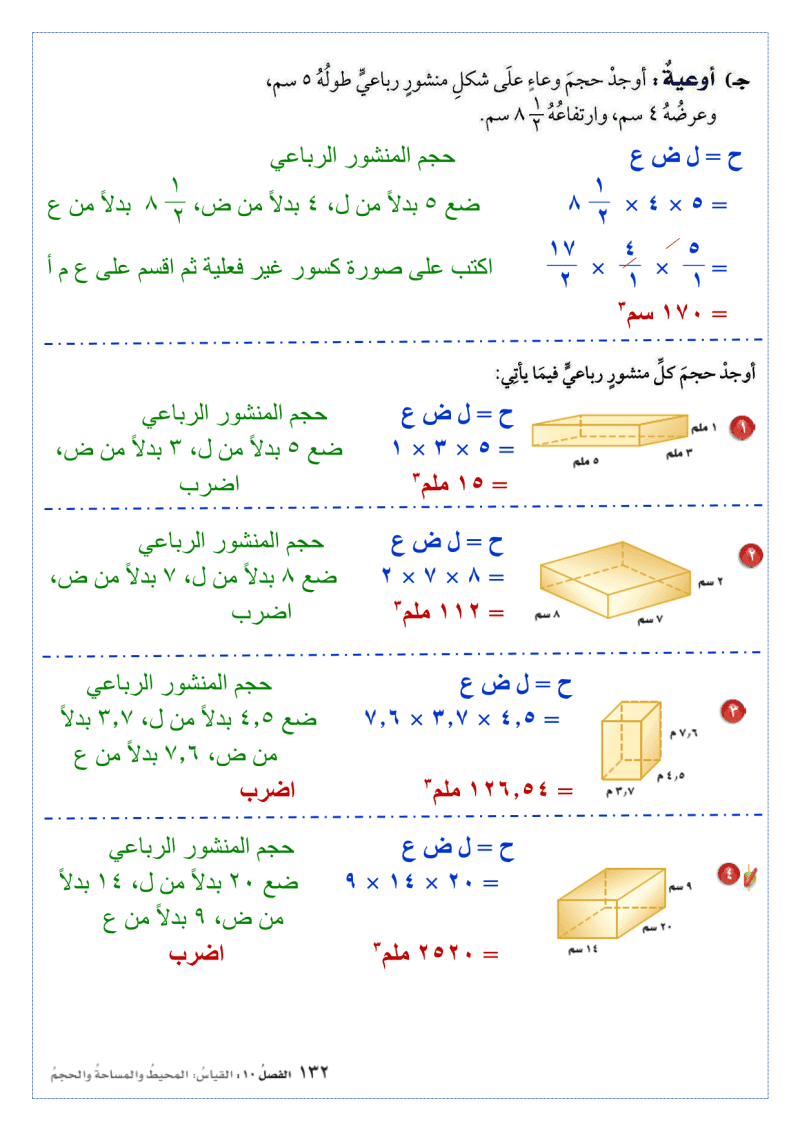 جـ) أوعيةٌ: أوجدْ حجمَ وعاءٍ علَى شكلِ منشورٍ رباعيٍّ طولُهُ ٥ سم،
وعرضُهُ ٤ سم، وارتفاعُهُ ٨ ١/٢ سم.
ح = ل ض ع حجم المنشور الرباعي
= ٥ × ٤ × ٨ ١/٢ ضع ٥ بدلاً من ل، ٤ بدلاً من ض، ٨ ١/٢ بدلاً من ع
= ٥/١ × ٤/١ × ١٧/٢ اكتب على صورة كسور غير فعلية ثم اقسم على ع م أ
= ١٧٠ سم٣
أوجدْ حجمَ كلِّ منشورٍ رباعيٍّ فيمَا يأتِي:
١
١ ملم
٣ ملم
٥ ملم
ح = ل ض ع حجم المنشور الرباعي
= ٥ × ٣ × ١ ضع ٥ بدلاً من ل، ٣ بدلاً من ض،
= ١٥ ملم٣ اضرب
٢
٢ سم
٧ سم
٨ سم
ح = ل ض ع حجم المنشور الرباعي
= ٨ × ٧ × ٢ ضع ٨ بدلاً من ل، ٧ بدلاً من ض،
= ١١٢ ملم٣ اضرب
٣
٧,٦ م
٤,٥ م
٣,٧ م
ح = ل ض ع حجم المنشور الرباعي
= ٤,٥ × ٣,٧ × ٧,٦ ضع ٤,٥ بدلاً من ل، ٣,٧ بدلاً
من ض، ٧,٦ بدلاً من ع
= ١٢٦,٥٤ ملم٣ اضرب
٤
٩ سم
٢٠ سم
١٤ سم
ح = ل ض ع حجم المنشور الرباعي
= ٢٠ × ١٤ × ٩ ضع ٢٠ بدلاً من ل، ١٤ بدلاً
من ض، ٩ بدلاً من ع
= ٢٥٢٠ ملم٣ اضرب
١٣٢ الفصلُ ١٠: القياسُ: المحيطُ والمساحةُ والحجمُ